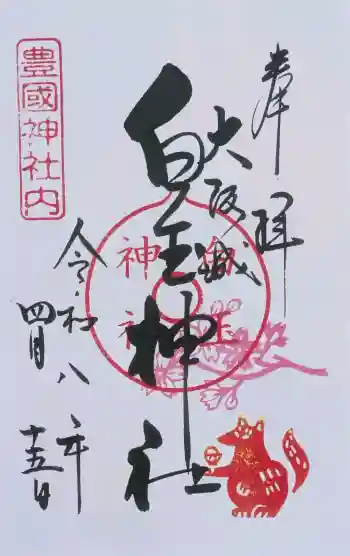 奉拝
大阪城
白玉神社
白玉
神社
豊國神社内
令和八年
四月十五日